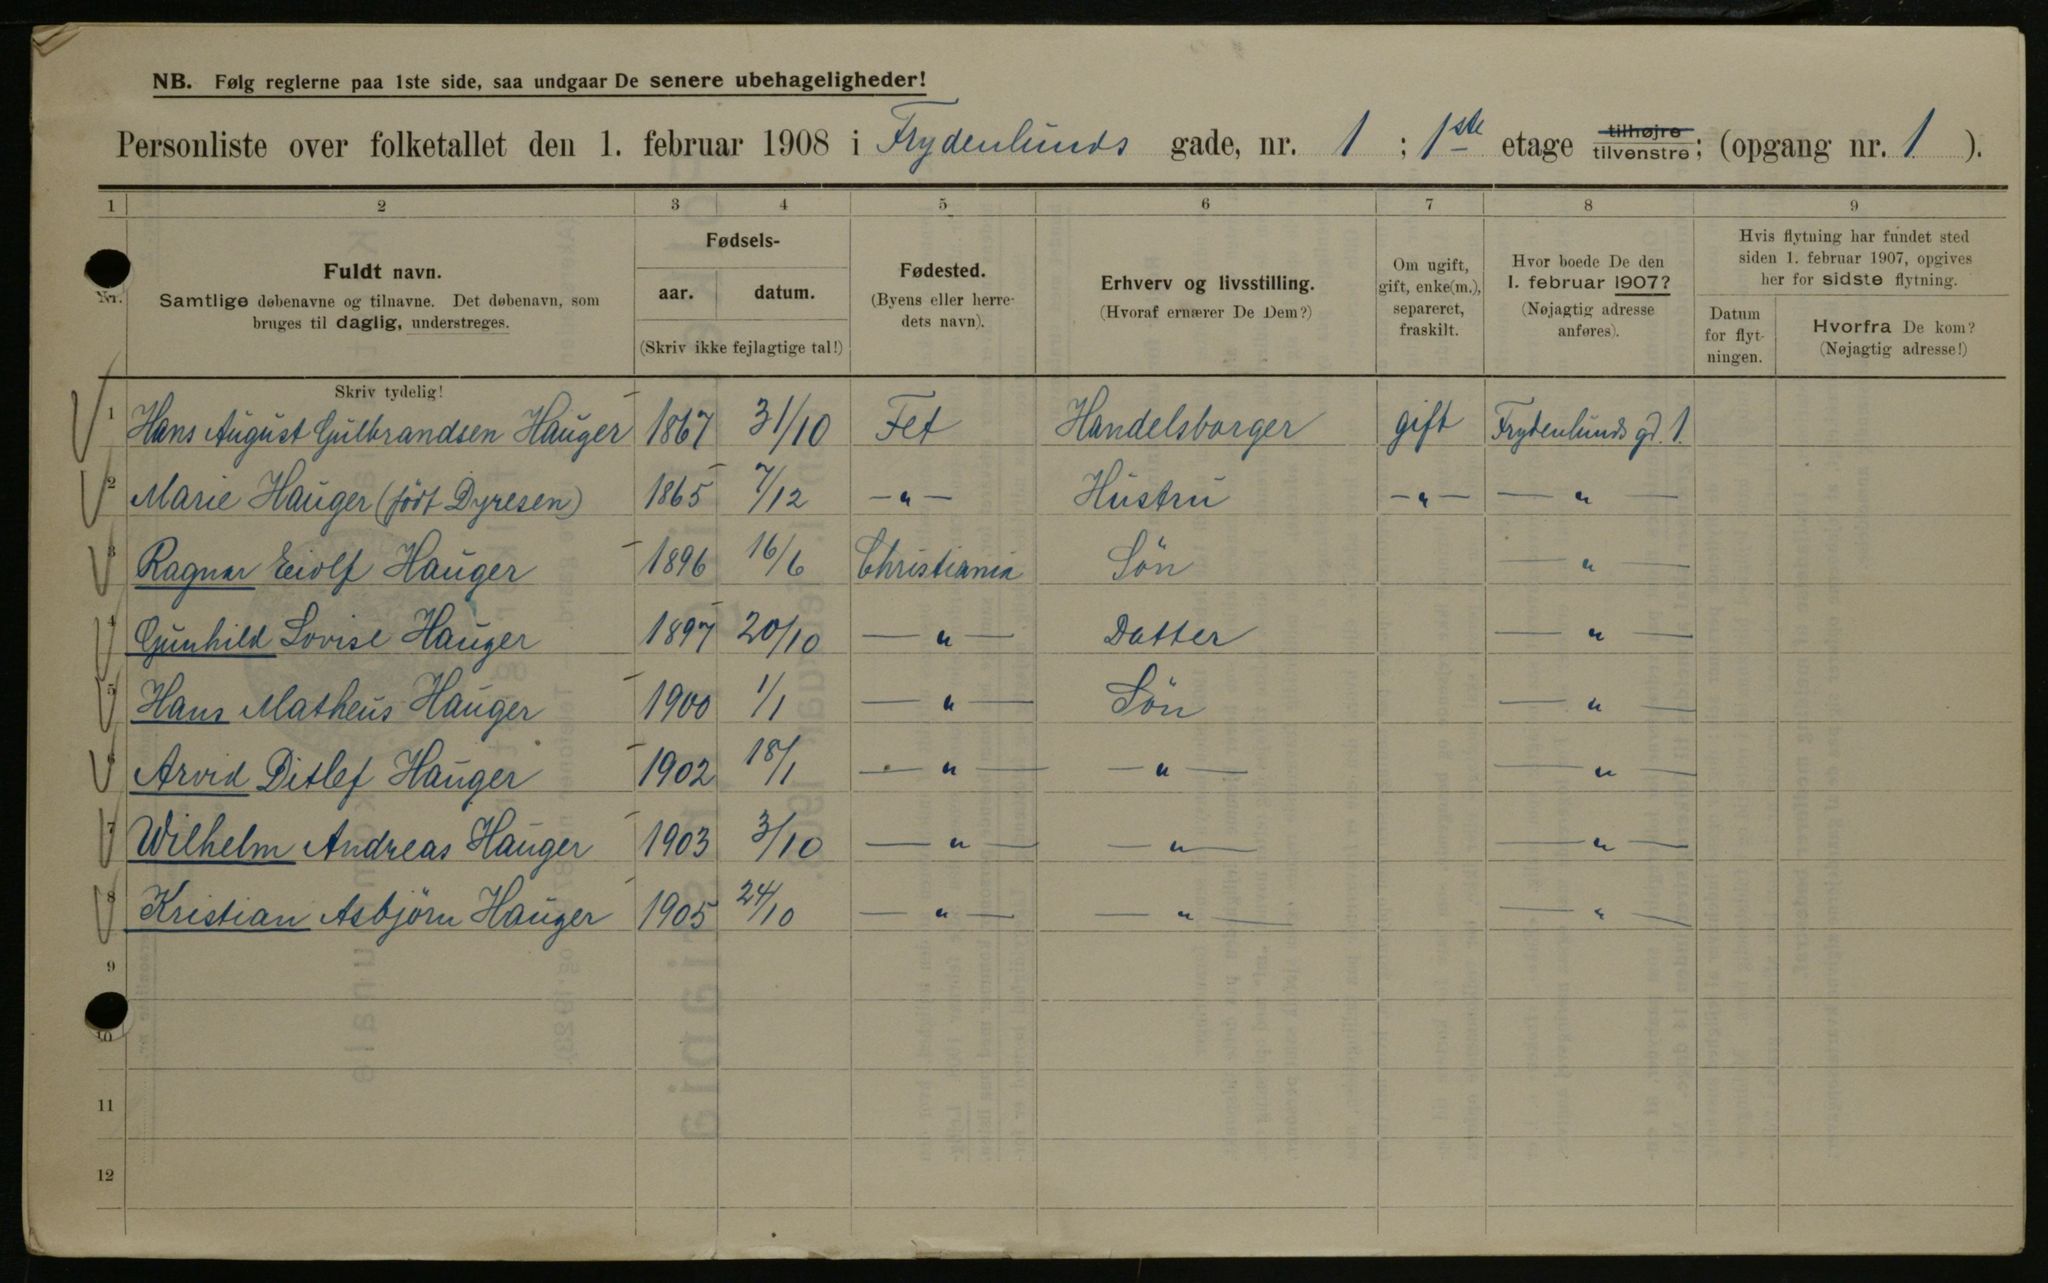 NB. Følg reglerne paa 1ste side, saa undgaar De senere ubehageligheder!
Personliste over folketallet den 1. februar 1908 i Frydenlunds gade, nr. 1 ; 1ste etage tilhøjre tilvenstre; (opgang nr. 1 ).
1 2 3 4 5 6 7 8 9
Nr.
Fuldt navn.
Samtlige døbenavne og tilnavne. Det døbenavn, som
bruges til daglig, understreges.
Fødsels-
aar. datum.
(Skriv ikke fejlagtige tal!)
Fødested.
(Byens eller herre-
dets navn).
Erhverv og livsstilling.
(Hvoraf ernærer De Dem?)
Om ugift,
gift, enke(m.),
separeret,
fraskilt.
Hvor boede De den
1. februar 1907?
(Nøjagtig adresse
anføres).
Hvis flytning har fundet sted
siden 1. februar 1907, opgives
her for sidste flytning.
Datum
for flyt-
ningen.
Hvorfra De kom?
(Nøjagtig adresse!)
Skriv tydelig!
1 Hans August Gulbrandsen Hauger 1867 31/10 Fet Handelsborger gift Frydenlunds gd. 1.
2 Marie Hauger (född Dyresen) 1865 7/12 — " — Hustru — " — — " —
3 Ragnar Eiolf Hauger 1896 16/6 Christiania Sön — " —
4 Gunhild Lovise Hauger 1897 20/10 — " — Datter — " —
5 Hans Matheus Hauger 1900 1/1 — " — Sön — " —
6 Arvid Ditlef Hauger 1902 18/1 — " — — " — — " —
7 Wilhelm Andreas Hauger 1903 3/10 — " — — " — — " —
8 Kristian Asbjörn Hauger 1905 24/10 — " — — " — — " —
9
10
11
12